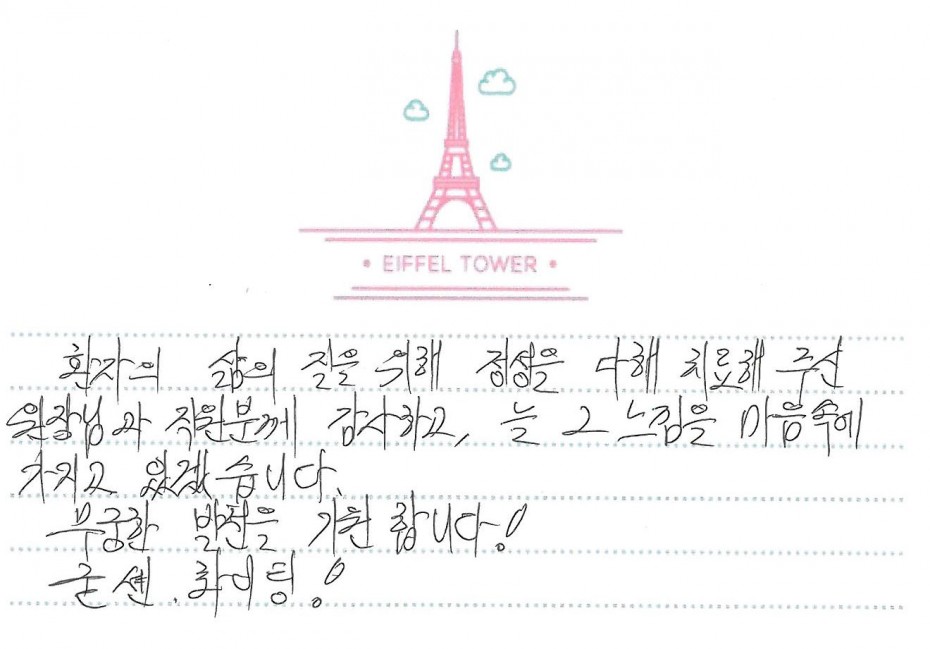 • EIFFEL TOWER •
환자의 삶의 질을 위해 정성을 다해 치료해 주신
원장님과 직원분께 감사하고, 늘 그 느낌을 마음속에
가지고 있겠습니다.
무궁한 발전을 기원합니다!
굳센. 화이팅!